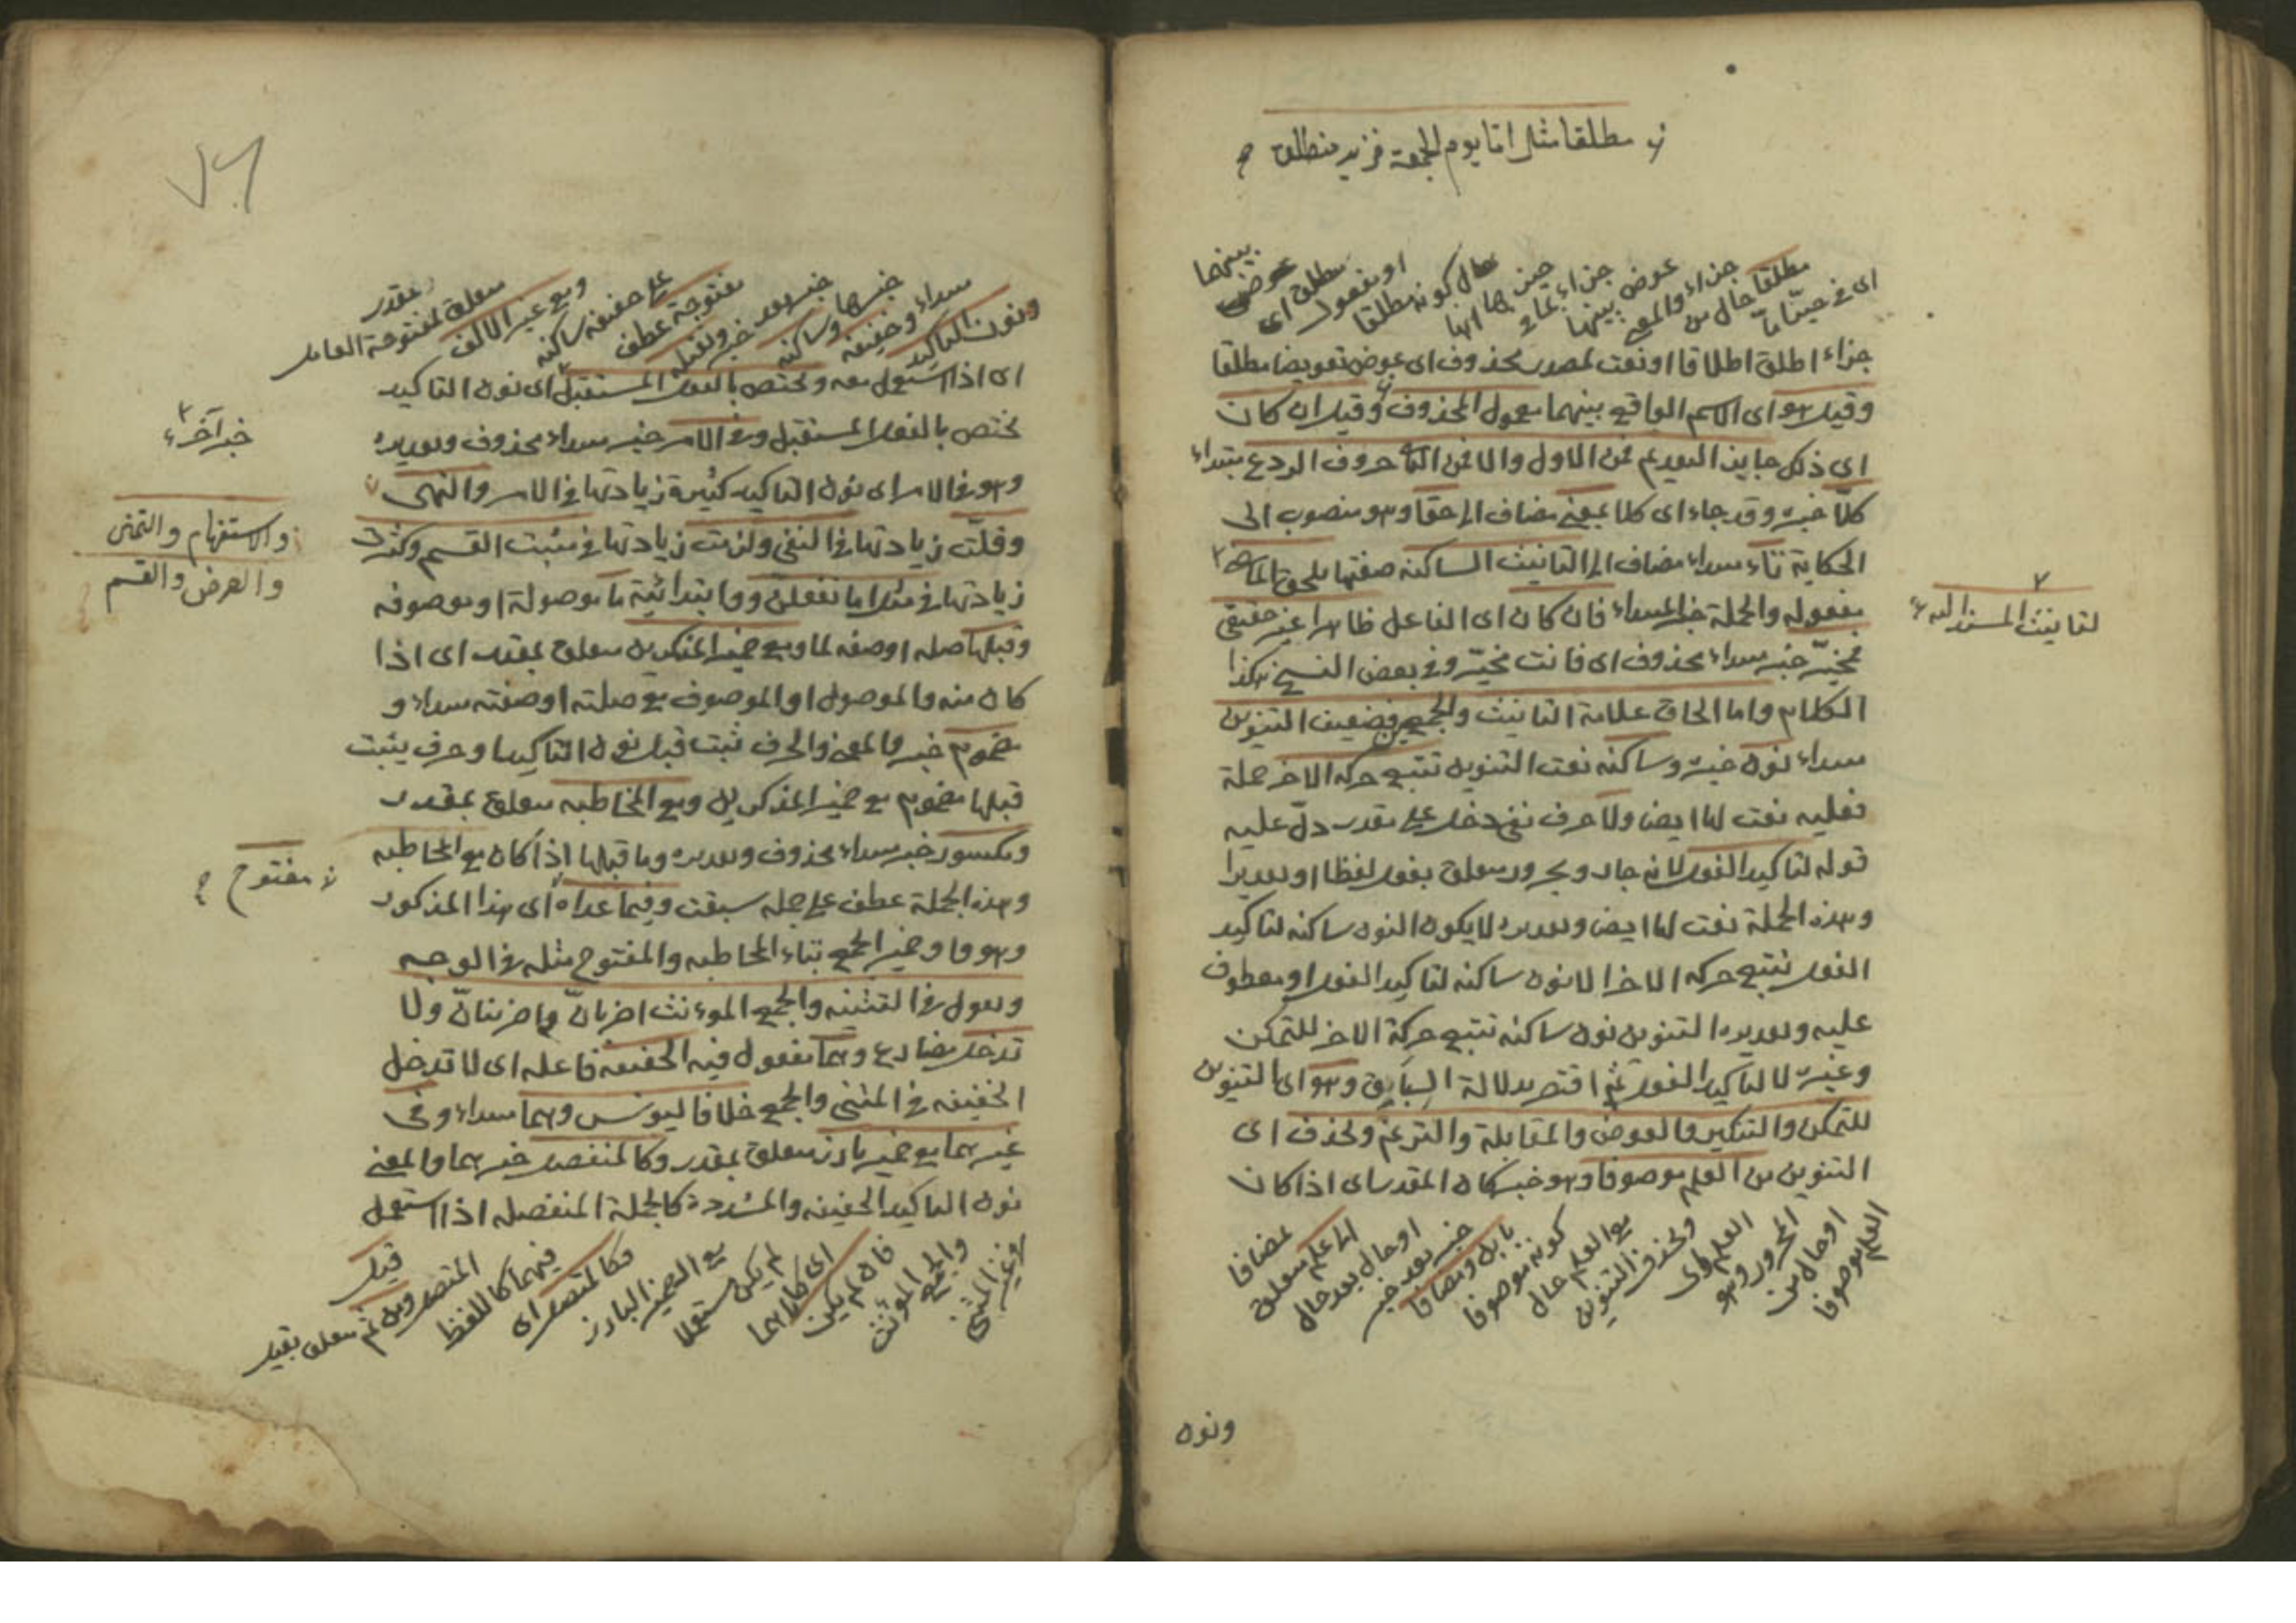 مطلقا مثل اما يوم الجمعة فزيد منطلق
اى فى حيّنا ما
مطلقا حال من
جزاء والمعنى
عوض بينهما
جزاء بما فى
حيزها انها
حال كونه مطلقا
او مفعول
مطلق اى
عوض
بينهما
جزاء اطلق اطلاقا او نعت لمصدر محذوف اى عوض تعويضا مطلقا
وقيل هو اى الاسم الواقع بينهما معمول المحذوف وقيل ان كان
اى ذلك جايز التقديم فمن الاول والا فمن الثانى حروف الردع مبتداء
كلّا خبره وقد جاء اى كلا بمعنى مضاف الى حقا وهو منصوب الى
الحكاية تاء مبتداء مضاف الى التانيث الساكنه صفتها يلحق الماضى
لتانيث المسند اليه
مفعوله والجملة خبر المبتداء فان كان اى الفاعل ظاهرا غير حقيقى
فمخيّر خبر مبتداء محذوف اى فانت مخيّر وفى بعض النسخ هكذا
الكلام واما الحاق علامة التانيث والجمعين فضعيف التنوين
مبتداء نون خبره وساكنه نعت التنوين تتبع حركه الاخر جملة
فعليه نعت لها ايضا ولا حرف نفى دخل على مقدر دلّ عليه
قوله لتاكيد الفعل لانه جار ومجرور متعلق بفعل لفظا او تقديرا
وهذه الجملة نعت لها ايضا وتقديره لا يكون النون ساكنه لتاكيد
الفعل تتبع حركه الاخر الا نون ساكنه لتاكيد الفعل او معطوف
عليه وتقديره التنوين نون ساكنه تتبع حركة الاخر للتمكن
وغيره لا لتاكيد الفعل ثم اقتصر لدلالة السابق وهو اى التنوين
للتمكن والتنكير والعوض والمقابلة والترنم ويحذف اى
التنوين من العلم موصوفا وهو خبر كان المقدر اى اذا كان
العلم موصوفا
او حال من
المجرور وهو
العلم اى
ويحذف التنوين
مع العلم حال
كونه موصوفا
بابن ومضافا
خبر بعد خبر
او حال بعد حال
الى علم متعلق
لمضافا
ونون
ونون التاكيد
مبتداء وخفيفه
خبرها وساكنه
خبر بعد خبر وثقيله
مفتوحة عطف
على خفيفه ساكنه
ومع غير الالف
متعلق لمفتوحة العامل
مقدر
اى اذا استعمل معه ويختص بالفعل المستقبل اى نون التاكيد
يختص بالفعل المستقبل وفى الامر خبر مبتداء محذوف وتقديره
خبر آخر
وهو فى الامر اى نون التاكيد كثيرة زيادتها فى الامر والنهى
والاستفهام والتمنى
والعرض والقسم
وقلّت زيادتها فى النفى ولزمت زيادتها فى مثبت القسم وكثرت
زيادتها فى مثل اما تفعلن وما ابتدائية ما موصولة او موصوفه
وقبلها صله او صفه لما ومع ضمير المذكرين متعلق بمقدر اى اذا
كان منه والموصول او الموصوف مع صلته او صفته مبتداء و
مضموم خبر والمعنى والحرف ثبت قبل نون التاكيد او حرف يثبت
قبلها مضموم مع ضمير المذكرين ومع المخاطبه متعلق بمقدر
ومكسور خبر مبتداء محذوف وتقديره وما قبلها اذا كان مع المخاطبه
وهذه الجملة عطف على جمله سبقت وفيما عداه اى هذا المذكور
مفتوح
وهو واو ضمير الجمع بتاء المخاطبه والمفتوح مثله فى الوجه
وتقول فى التثنيه والجمع الموءنث اضربانّ واضربنانّ ولا
تدخل مضارع وهما مفعول فيه الخفيفه فاعله اى لا تدخل
الخفيفه فى المثنى والجمع خلافا ليونس وهما مبتداء وفى
غيرهما مع ضمير بارز متعلق بمقدر وكالمنفصل خبرهما والمعنى
نون التاكيد الخفيفه والمشددة كالجملة المنفصله اذا استعمل
وغير المثنى
والجمع المؤنث
فان لم يكن
اى كلاهما
لم يكن مستعملا
مع الضمير البارز
فكالمتصل اى
فيهما كاللفظ
المتصل ومن ثم متعلق بقيل
قيل